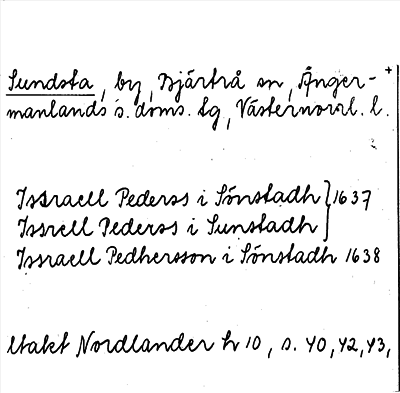 Sundsta, by, Bjärtrå sn, Ånger-+
manlands s. doms. tg, Västernorrl. l.
Issraell Pederss i Sönstadh } 1637
Issrell Pederss i Sunstadh
Issraell Pedhersson i Sönstadh 1638
Utakt Nordlander h 10, s. 40, 42, 43,